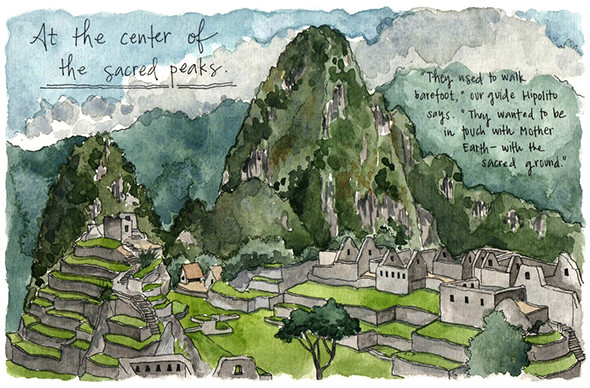 At the center of
the sacred peaks.
"They used to walk
barefoot," our guide Hipolito
says. "They wanted to be
in touch with Mother
Earth— with the
sacred ground."